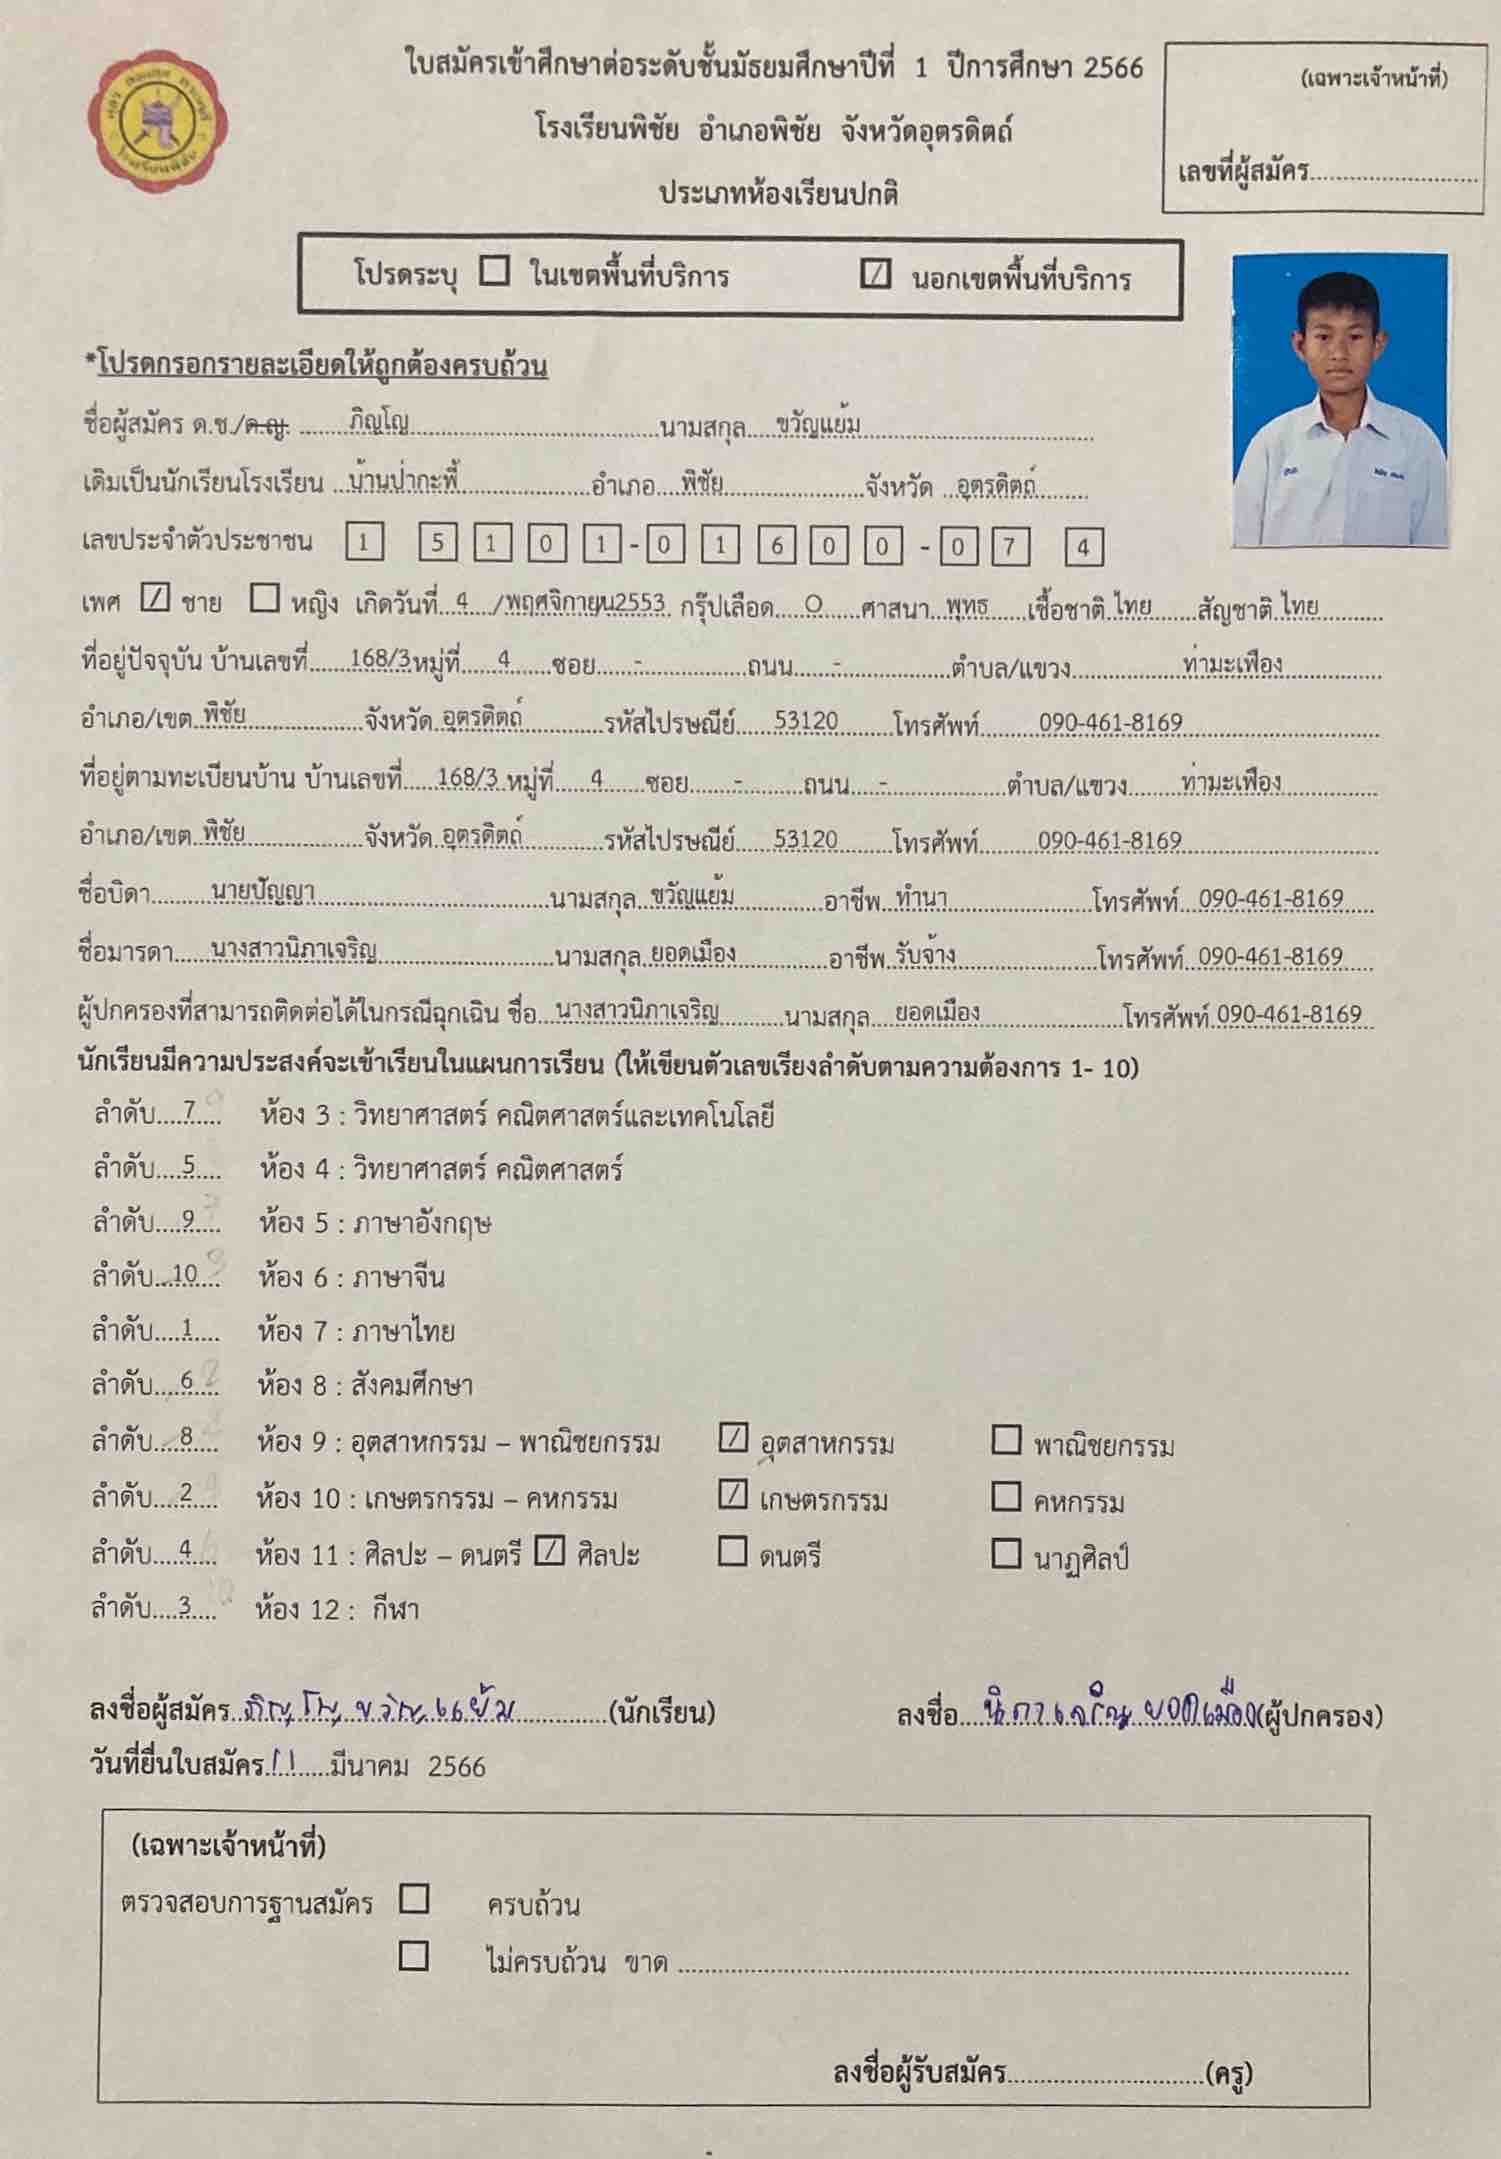 ใบสมัครเข้าศึกษาต่อระดับชั้นมัธยมศึกษาปีที่ 1 ปีการศึกษา 2566
(เฉพาะเจ้าหน้าที่)
โรงเรียนพิชัย อำเภอพิชัย จังหวัดอุตรดิตถ์
เลขที่ผู้สมัคร
ประเภทห้องเรียนปกติ
โปรดระบุ ☐ ในเขตพื้นที่บริการ ☑ นอกเขตพื้นที่บริการ
*โปรดกรอกรายละเอียดให้ถูกต้องครบถ้วน
ชื่อผู้สมัคร ด.ช./ด.ญ. ภิญโญ นามสกุล ขวัญแย้ม
เดิมเป็นนักเรียนโรงเรียน บ้านป่ากะพี้ อำเภอ พิชัย จังหวัด อุตรดิตถ์
เลขประจำตัวประชาชน 1 5 1 0 1 - 0 1 6 0 0 - 0 7 4
เพศ ☑ ชาย ☐ หญิง เกิดวันที่ 4 /พฤศจิกายน2553 กรุ๊ปเลือด O ศาสนา พุทธ เชื้อชาติ ไทย สัญชาติ ไทย
ที่อยู่ปัจจุบัน บ้านเลขที่ 168/3 หมู่ที่ 4 ซอย - ถนน - ตำบล/แขวง ท่ามะเฟือง
อำเภอ/เขต พิชัย จังหวัด อุตรดิตถ์ รหัสไปรษณีย์ 53120 โทรศัพท์ 090-461-8169
ที่อยู่ตามทะเบียนบ้าน บ้านเลขที่ 168/3 หมู่ที่ 4 ซอย - ถนน - ตำบล/แขวง ท่ามะเฟือง
อำเภอ/เขต พิชัย จังหวัด อุตรดิตถ์ รหัสไปรษณีย์ 53120 โทรศัพท์ 090-461-8169
ชื่อบิดา นายปัญญา นามสกุล ขวัญแย้ม อาชีพ ทำนา โทรศัพท์ 090-461-8169
ชื่อมารดา นางสาวนิภาเจริญ นามสกุล ยอดเมือง อาชีพ รับจ้าง โทรศัพท์ 090-461-8169
ผู้ปกครองที่สามารถติดต่อได้ในกรณีฉุกเฉิน ชื่อ นางสาวนิภาเจริญ นามสกุล ยอดเมือง โทรศัพท์ 090-461-8169
นักเรียนมีความประสงค์จะเข้าเรียนในแผนการเรียน (ให้เขียนตัวเลขเรียงลำดับตามความต้องการ 1- 10)
ลำดับ 7 ห้อง 3 : วิทยาศาสตร์ คณิตศาสตร์และเทคโนโลยี
ลำดับ 5 ห้อง 4 : วิทยาศาสตร์ คณิตศาสตร์
ลำดับ 9 ห้อง 5 : ภาษาอังกฤษ
ลำดับ 10 ห้อง 6 : ภาษาจีน
ลำดับ 1 ห้อง 7 : ภาษาไทย
ลำดับ 6 ห้อง 8 : สังคมศึกษา
ลำดับ 8 ห้อง 9 : อุตสาหกรรม – พาณิชยกรรม ☑ อุตสาหกรรม ☐ พาณิชยกรรม
ลำดับ 2 ห้อง 10 : เกษตรกรรม – คหกรรม ☑ เกษตรกรรม ☐ คหกรรม
ลำดับ 4 ห้อง 11 : ศิลปะ – ดนตรี ☑ ศิลปะ ☐ ดนตรี ☐ นาฏศิลป์
ลำดับ 3 ห้อง 12 : กีฬา
ลงชื่อผู้สมัคร ภิญโญ ขวัญแย้ม (นักเรียน) ลงชื่อ นิภาเจริญ ยอดเมือง (ผู้ปกครอง)
วันที่ยื่นใบสมัคร 11 มีนาคม 2566
(เฉพาะเจ้าหน้าที่)
ตรวจสอบการฐานสมัคร ☐ ครบถ้วน
☐ ไม่ครบถ้วน ขาด
ลงชื่อผู้รับสมัคร (ครู)